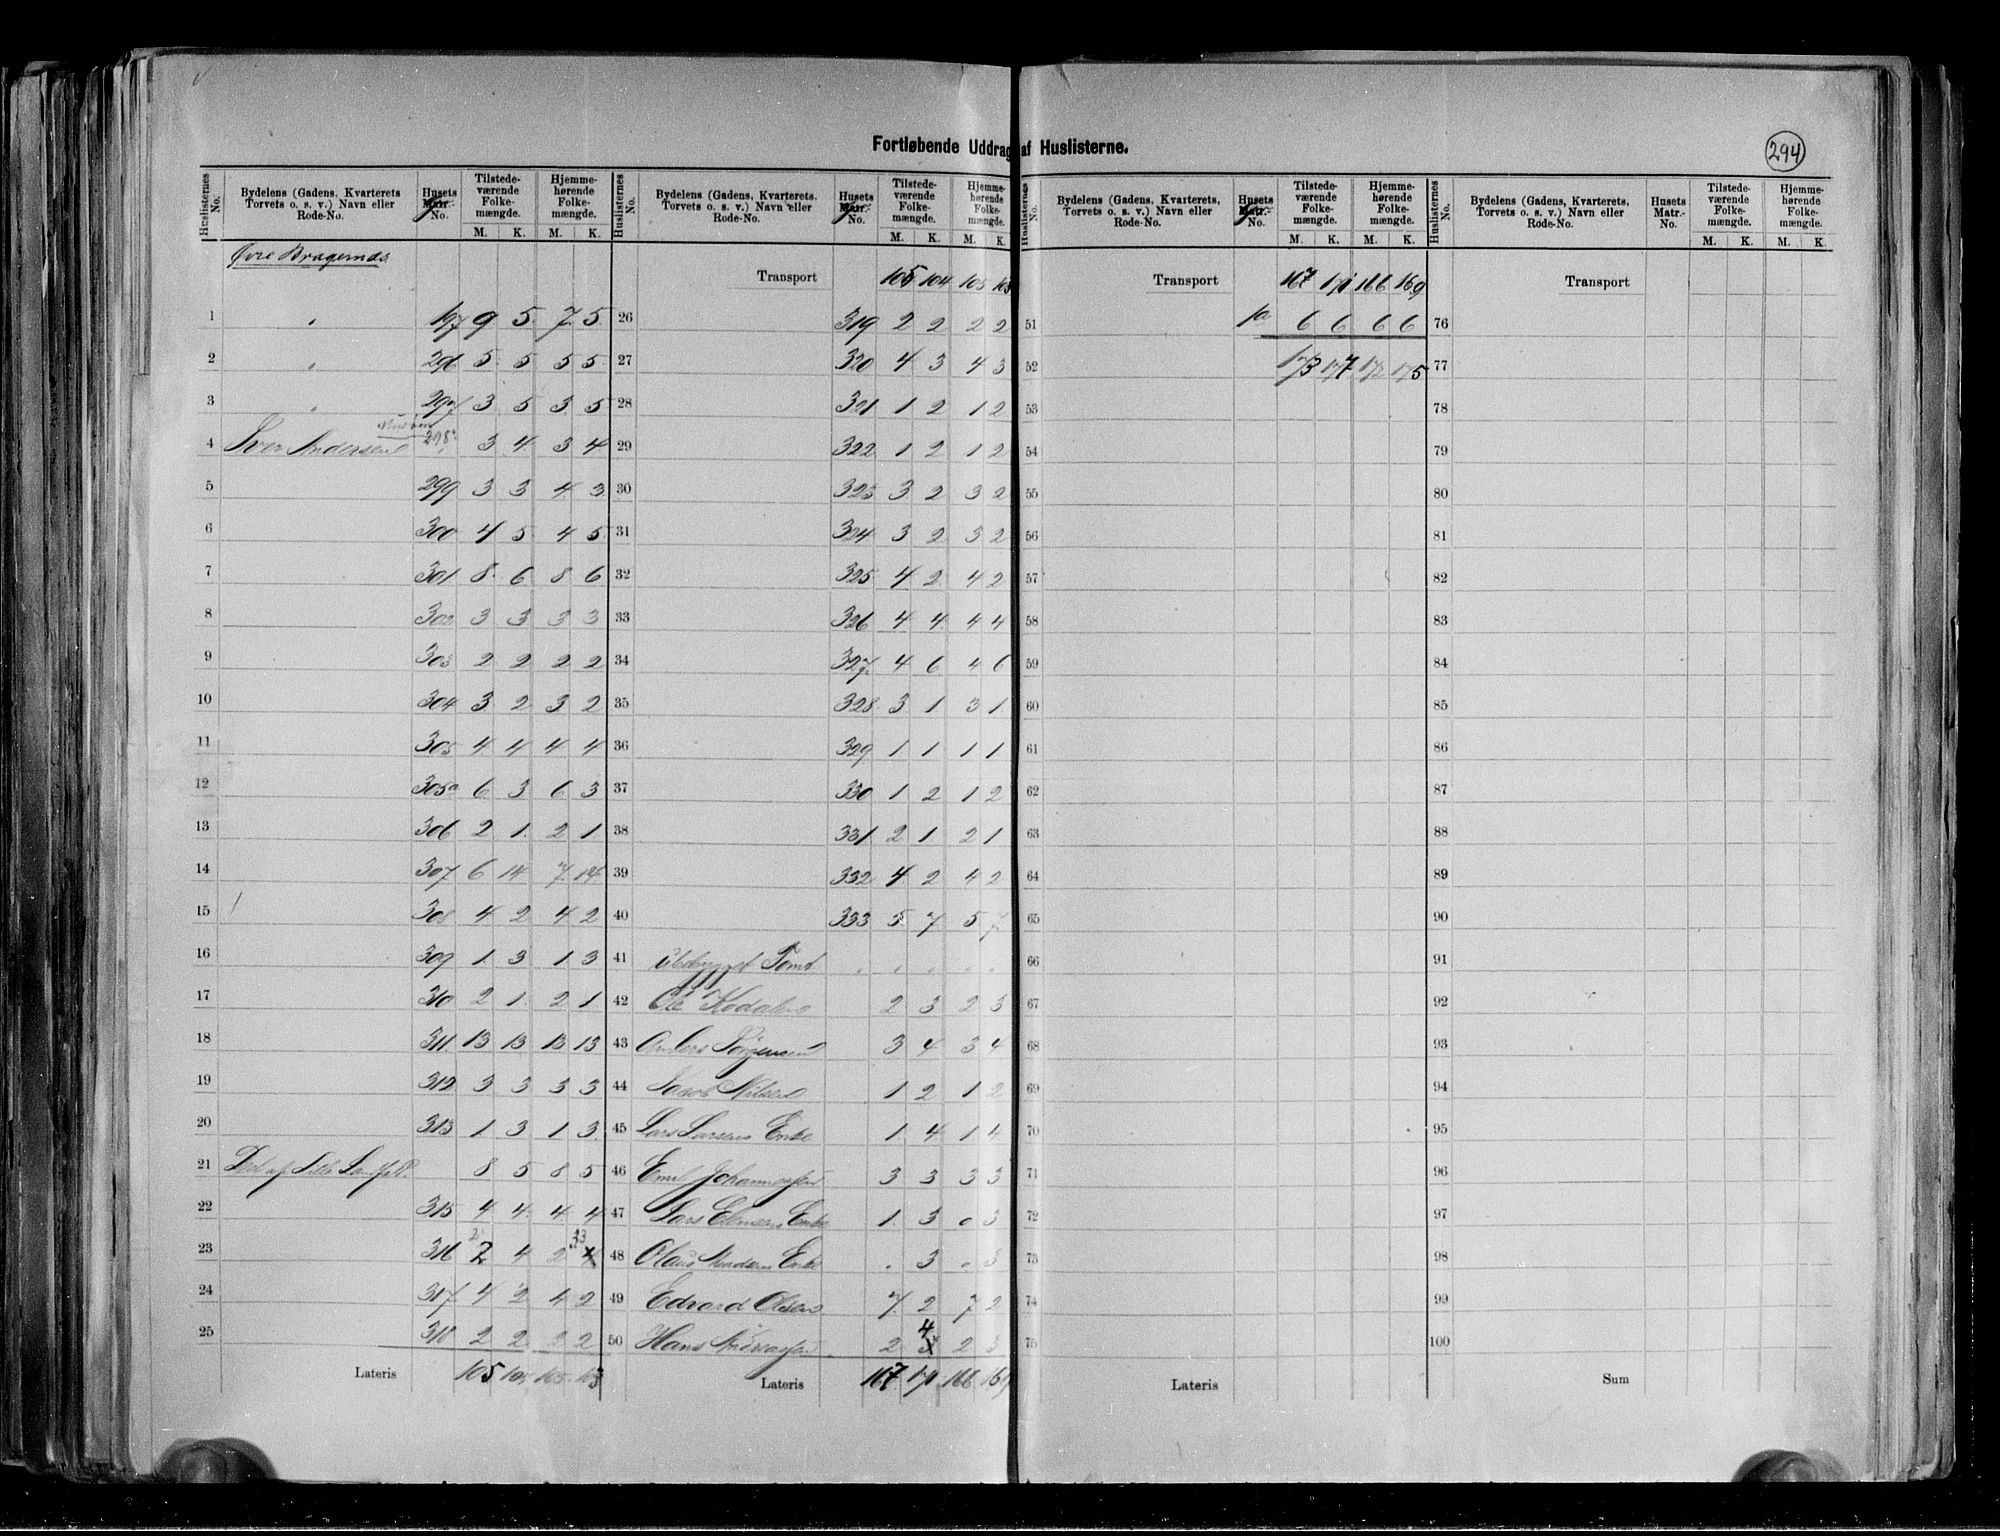 Fortløbende Uddrag af Huslisterne.
294
Huslisternes No. Bydelens (Gadens, Kvarterets Torvets o. s. v.) Navn eller Rode-No. Husets Matr.-No. Tilstedeværende Folkemængde. M. K. Hjemmehørende Folkemængde. M. K.
Øvre Bragernes
1 " 197 9 5 7 5
2 " 296 5 5 5 5
3 " 297 3 5 3 5
4 Iver Andersen 298 3 4 3 4
5 299 3 3 4 3
6 300 4 5 4 5
7 301 8 6 8 6
8 302 3 3 3 3
9 303 2 2 2 2
10 304 3 2 3 2
11 305 4 4 4 4
12 305a 6 3 6 3
13 306 2 1 2 1
14 307 6 14 7 14
15 308 4 2 4 2
16 309 1 3 1 3
17 310 2 1 2 1
18 311 13 13 13 13
19 312 3 3 3 3
20 313 1 3 1 3
21 Del af 8 5 8 5
22 315 4 4 4 4
23 316 2 4 2 3
24 317 4 2 4 2
25 318 2 2 2 2
Lateris 105 104 105 103
Huslisternes No. Bydelens (Gadens, Kvarterets, Torvets o. s. v.) Navn eller Rode-No. Husets Matr.-No. Tilstedeværende Folkemængde. M. K. Hjemmehørende Folkemængde. M. K.
Transport 105 104 105 103
26 319 2 2 2 2
27 320 4 3 4 3
28 321 1 2 1 2
29 322 1 2 1 2
30 323 3 2 3 2
31 324 3 2 3 2
32 325 4 2 4 2
33 326 4 4 4 4
34 327 4 6 4 6
35 328 3 1 3 1
36 329 1 1 1 1
37 330 1 2 1 2
38 331 2 1 2 1
39 332 4 2 4 2
40 333 5 7 5 7
41 Ubebygget Tomt . . . . .
42 Ole Kodalen 2 3 2 3
43 Anders Jörgensen 3 4 3 4
44 Jacob Nilsen 1 2 1 2
45 Lars Larsens Enke 1 4 1 4
46 Emil Johannessen 3 3 3 3
47 Lars Ellensens Enke 1 3 0 3
48 Olaus Enke . 3 0 3
49 Edvard Olsen 7 2 7 2
50 Hans Andreassen 2 4 2 3
Lateris 167 171 166 169
Huslisternes No. Bydelens (Gadens, Kvarterets, Torvets o. s. v.) Navn eller Rode-No. Husets Matr.-No. Tilstedeværende Folkemængde. M. K. Hjemmehørende Folkemængde. M. K.
Transport 167 171 166 169
51 1a 6 6 6 6
52 173 177 172 175
53
54
55
56
57
58
59
60
61
62
63
64
65
66
67
68
69
70
71
72
73
74
75
Lateris
Huslisternes No. Bydelens (Gadens, Kvarterets Torvets o. s. v.) Navn eller Rode-No. Husets Matr.-No. Tilstedeværende Folkemængde. M. K. Hjemmehørende Folkemængde. M. K.
Transport
76
77
78
79
80
81
82
83
84
85
86
87
88
89
90
91
92
93
94
95
96
97
98
99
100
Sum